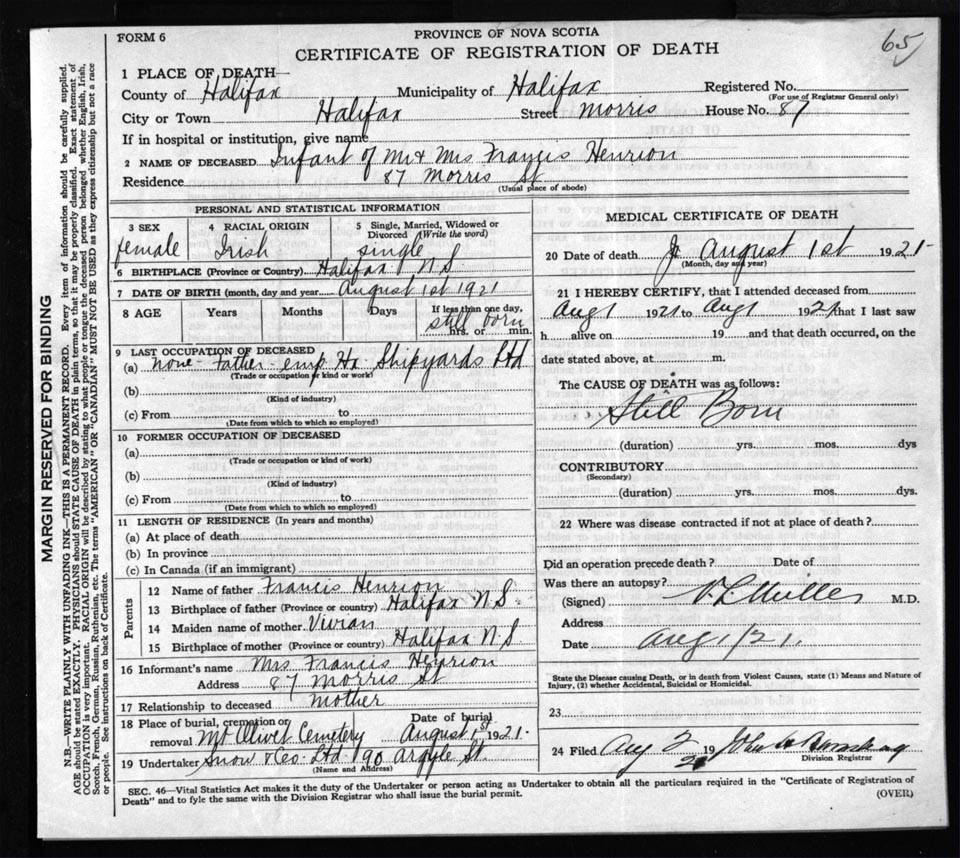 FORM 6
PROVINCE OF NOVA SCOTIA
65
CERTIFICATE OF REGISTRATION OF DEATH
1 PLACE OF DEATH
County of Halifax Municipality of Halifax Registered No.
(For use of Registrar General only)
City or Town Halifax Street Morris House No. 87
If in hospital or institution, give name
2 NAME OF DECEASED Infant of Mr & Mrs Francis Henrion
Residence 87 Morris St
(Usual place of abode)
PERSONAL AND STATISTICAL INFORMATION
3 SEX 4 RACIAL ORIGIN 5 Single, Married, Widowed or Divorced (Write the word)
female Irish single
6 BIRTHPLACE (Province or Country) Halifax N.S.
7 DATE OF BIRTH (month, day and year) August 1st 1921
8 AGE Years Months Days If less than one day,
still born
hrs. or min.
9 LAST OCCUPATION OF DECEASED
(a) none - father - emp Hx Shipyards Ltd
(Trade or occupation or kind of work)
(b)
(Kind of industry)
(c) From to
(Date from which to which so employed)
10 FORMER OCCUPATION OF DECEASED
(a)
(Trade or occupation or kind of work)
(b)
(Kind of industry)
(c) From to
(Date from which to which so employed)
11 LENGTH OF RESIDENCE (In years and months)
(a) At place of death
(b) In province
(c) In Canada (if an immigrant)
Parents
12 Name of father Francis Henrion
13 Birthplace of father (Province or country) Halifax N.S.
14 Maiden name of mother Vivian
15 Birthplace of mother (Province or country) Halifax N.S.
16 Informant's name Mrs Francis Henrion
Address 87 Morris St
17 Relationship to deceased mother
18 Place of burial, cremation or removal Mt Olivet Cemetery Date of burial August 1st 1921.
19 Undertaker Snow & Co. Ltd 90 Argyle St.
(Name and Address)
MEDICAL CERTIFICATE OF DEATH
20 Date of death August 1st 1921
(Month, day and year)
21 I HEREBY CERTIFY, that I attended deceased from
Aug 1 1921 to Aug 1 1921 that I last saw
h alive on 19 and that death occurred, on the
date stated above, at m.
The CAUSE OF DEATH was as follows:
Still Born
(duration) yrs. mos. dys
CONTRIBUTORY
(Secondary)
(duration) yrs. mos. dys.
22 Where was disease contracted if not at place of death?
Did an operation precede death? Date of
Was there an autopsy?
(Signed) Miller M.D.
Address
Date Aug 1/21.
State the Disease causing Death, or in death from Violent Causes, state (1) Means and Nature of
Injury, (2) whether Accidental, Suicidal or Homicidal.
23
24 Filed Aug 2 19 21 John
Division Registrar
SEC. 46—Vital Statistics Act makes it the duty of the Undertaker or person acting as Undertaker to obtain all the particulars required in the "Certificate of Registration of
Death" and to fyle the same with the Division Registrar who shall issue the burial permit.
(OVER)
MARGIN RESERVED FOR BINDING
N.B.—WRITE PLAINLY WITH UNFADING INK—THIS IS A PERMANENT RECORD. Every item of information should be carefully supplied.
AGE should be stated EXACTLY. PHYSICIANS should STATE CAUSE OF DEATH in plain terms, so that it may be properly classified. Exact statement of
OCCUPATION is very important. RACIAL ORIGIN will be described by stating to what people or tongue the deceased person belonged whether English, Irish,
Scotch, French, German, Russian, Ruthenian, etc. The terms "AMERICAN" OR "CANADIAN" MUST NOT BE USED as they express citizenship but not a race
or people. See instructions on back of Certificate.